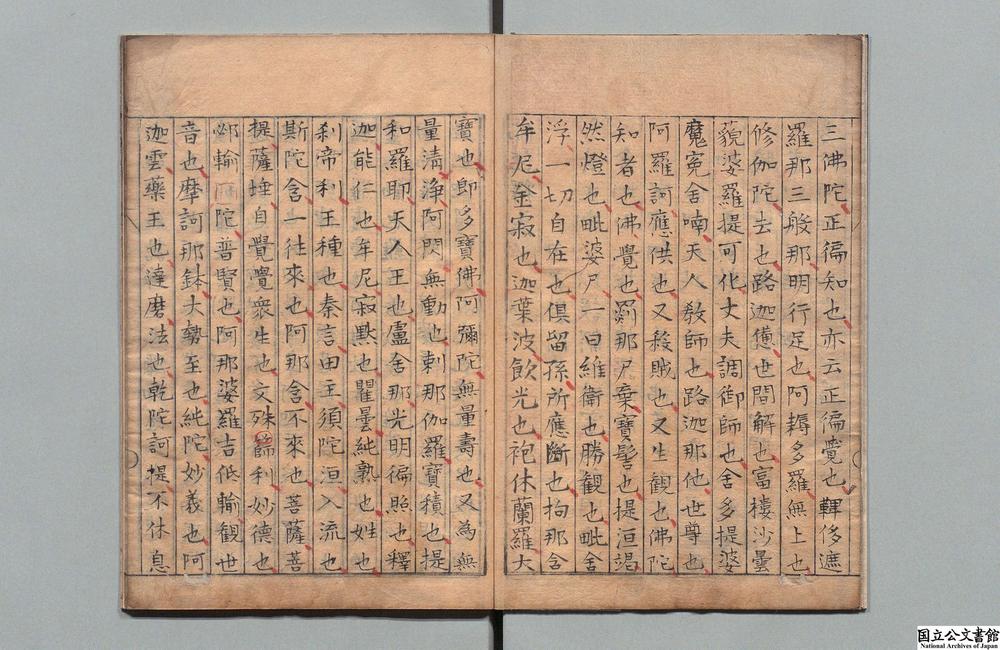 三佛陀正徧知也亦云正徧覺也鞞侈遮
羅那三般那明行足也阿耨多羅無上也
修伽陀去也路迦憊世間解也富樓沙曇
藐婆羅提可化丈夫調御師也舍多提婆
魔㝹舍喃天人教師也路迦那他世尊也
阿羅訶應供也又殺賊也又生観也佛陀
知者也佛覺也罽那尸棄寶髻也提洹竭
然燈也毗婆尸一曰維衛也勝観也毗舍
浮一切自在也俱留孫所應斷也拘那含
牟尼金寂也迦葉波飲光也袍休蘭羅大
寶也即多寶佛阿彌陀無量壽也又為無
量淸淨阿閦無動也剌那伽羅寶積也提
和羅耶天人王也盧舍那光明徧照也釋
迦能仁也牟尼寂默也瞿曇純熟也姓也
刹帝利王種也秦言田主須陀洹入流也
斯陀含一往來也阿那含不來也菩薩菩
提薩埵自覺覺衆生也文殊師利妙德也
邲輸陀普賢也阿那婆羅吉低輸観世
音也摩訶那鉢大勢至也純陀妙義也阿
迦雲藥王也達磨法也乾陀訶提不休息
国立公文書館
National Archives of Japan